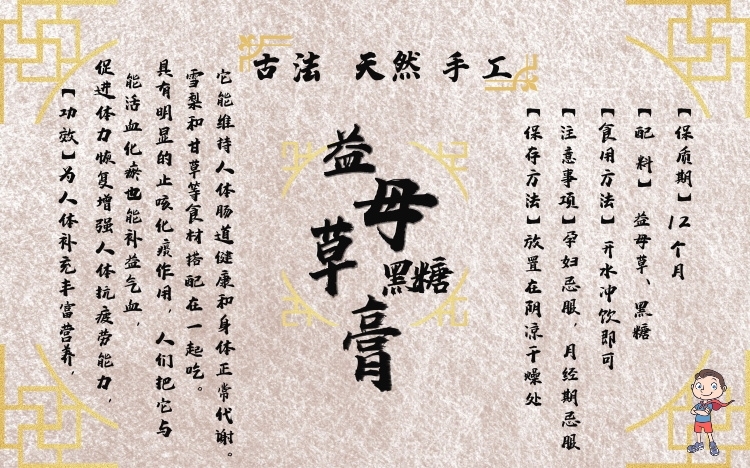 古法 天然 手工
益母草
黑糖
膏
【保质期】12个月
【配 料】益母草、黑糖
【食用方法】开水冲饮即可
【注意事项】孕妇忌服,月经期忌服
【保存方法】放置在阴凉干燥处
【功效】为人体补充丰富营养,
促进体力恢复增强人体抗疲劳能力,
能活血化瘀也能补益气血,
具有明显的止咳化痰作用,人们把它与
雪梨和甘草等食材搭配在一起吃。
它能维持人体肠道健康和身体正常代谢。